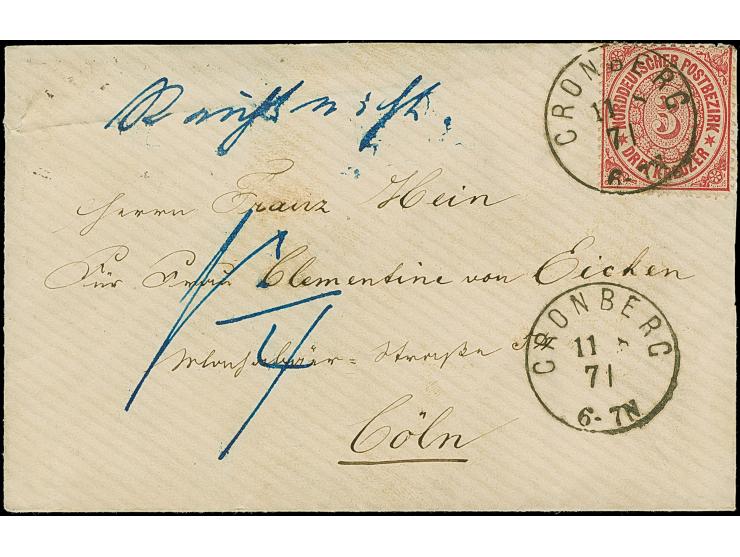 CRONBERG
11
71
6
NORDDEUTSCHER POSTBEZIRK
3
DREI KREUZER
Herrn Franz Hein
Für Frau Clementine von Eicken
CRONBERG
11
71
6-7N
Straße
4
Cöln